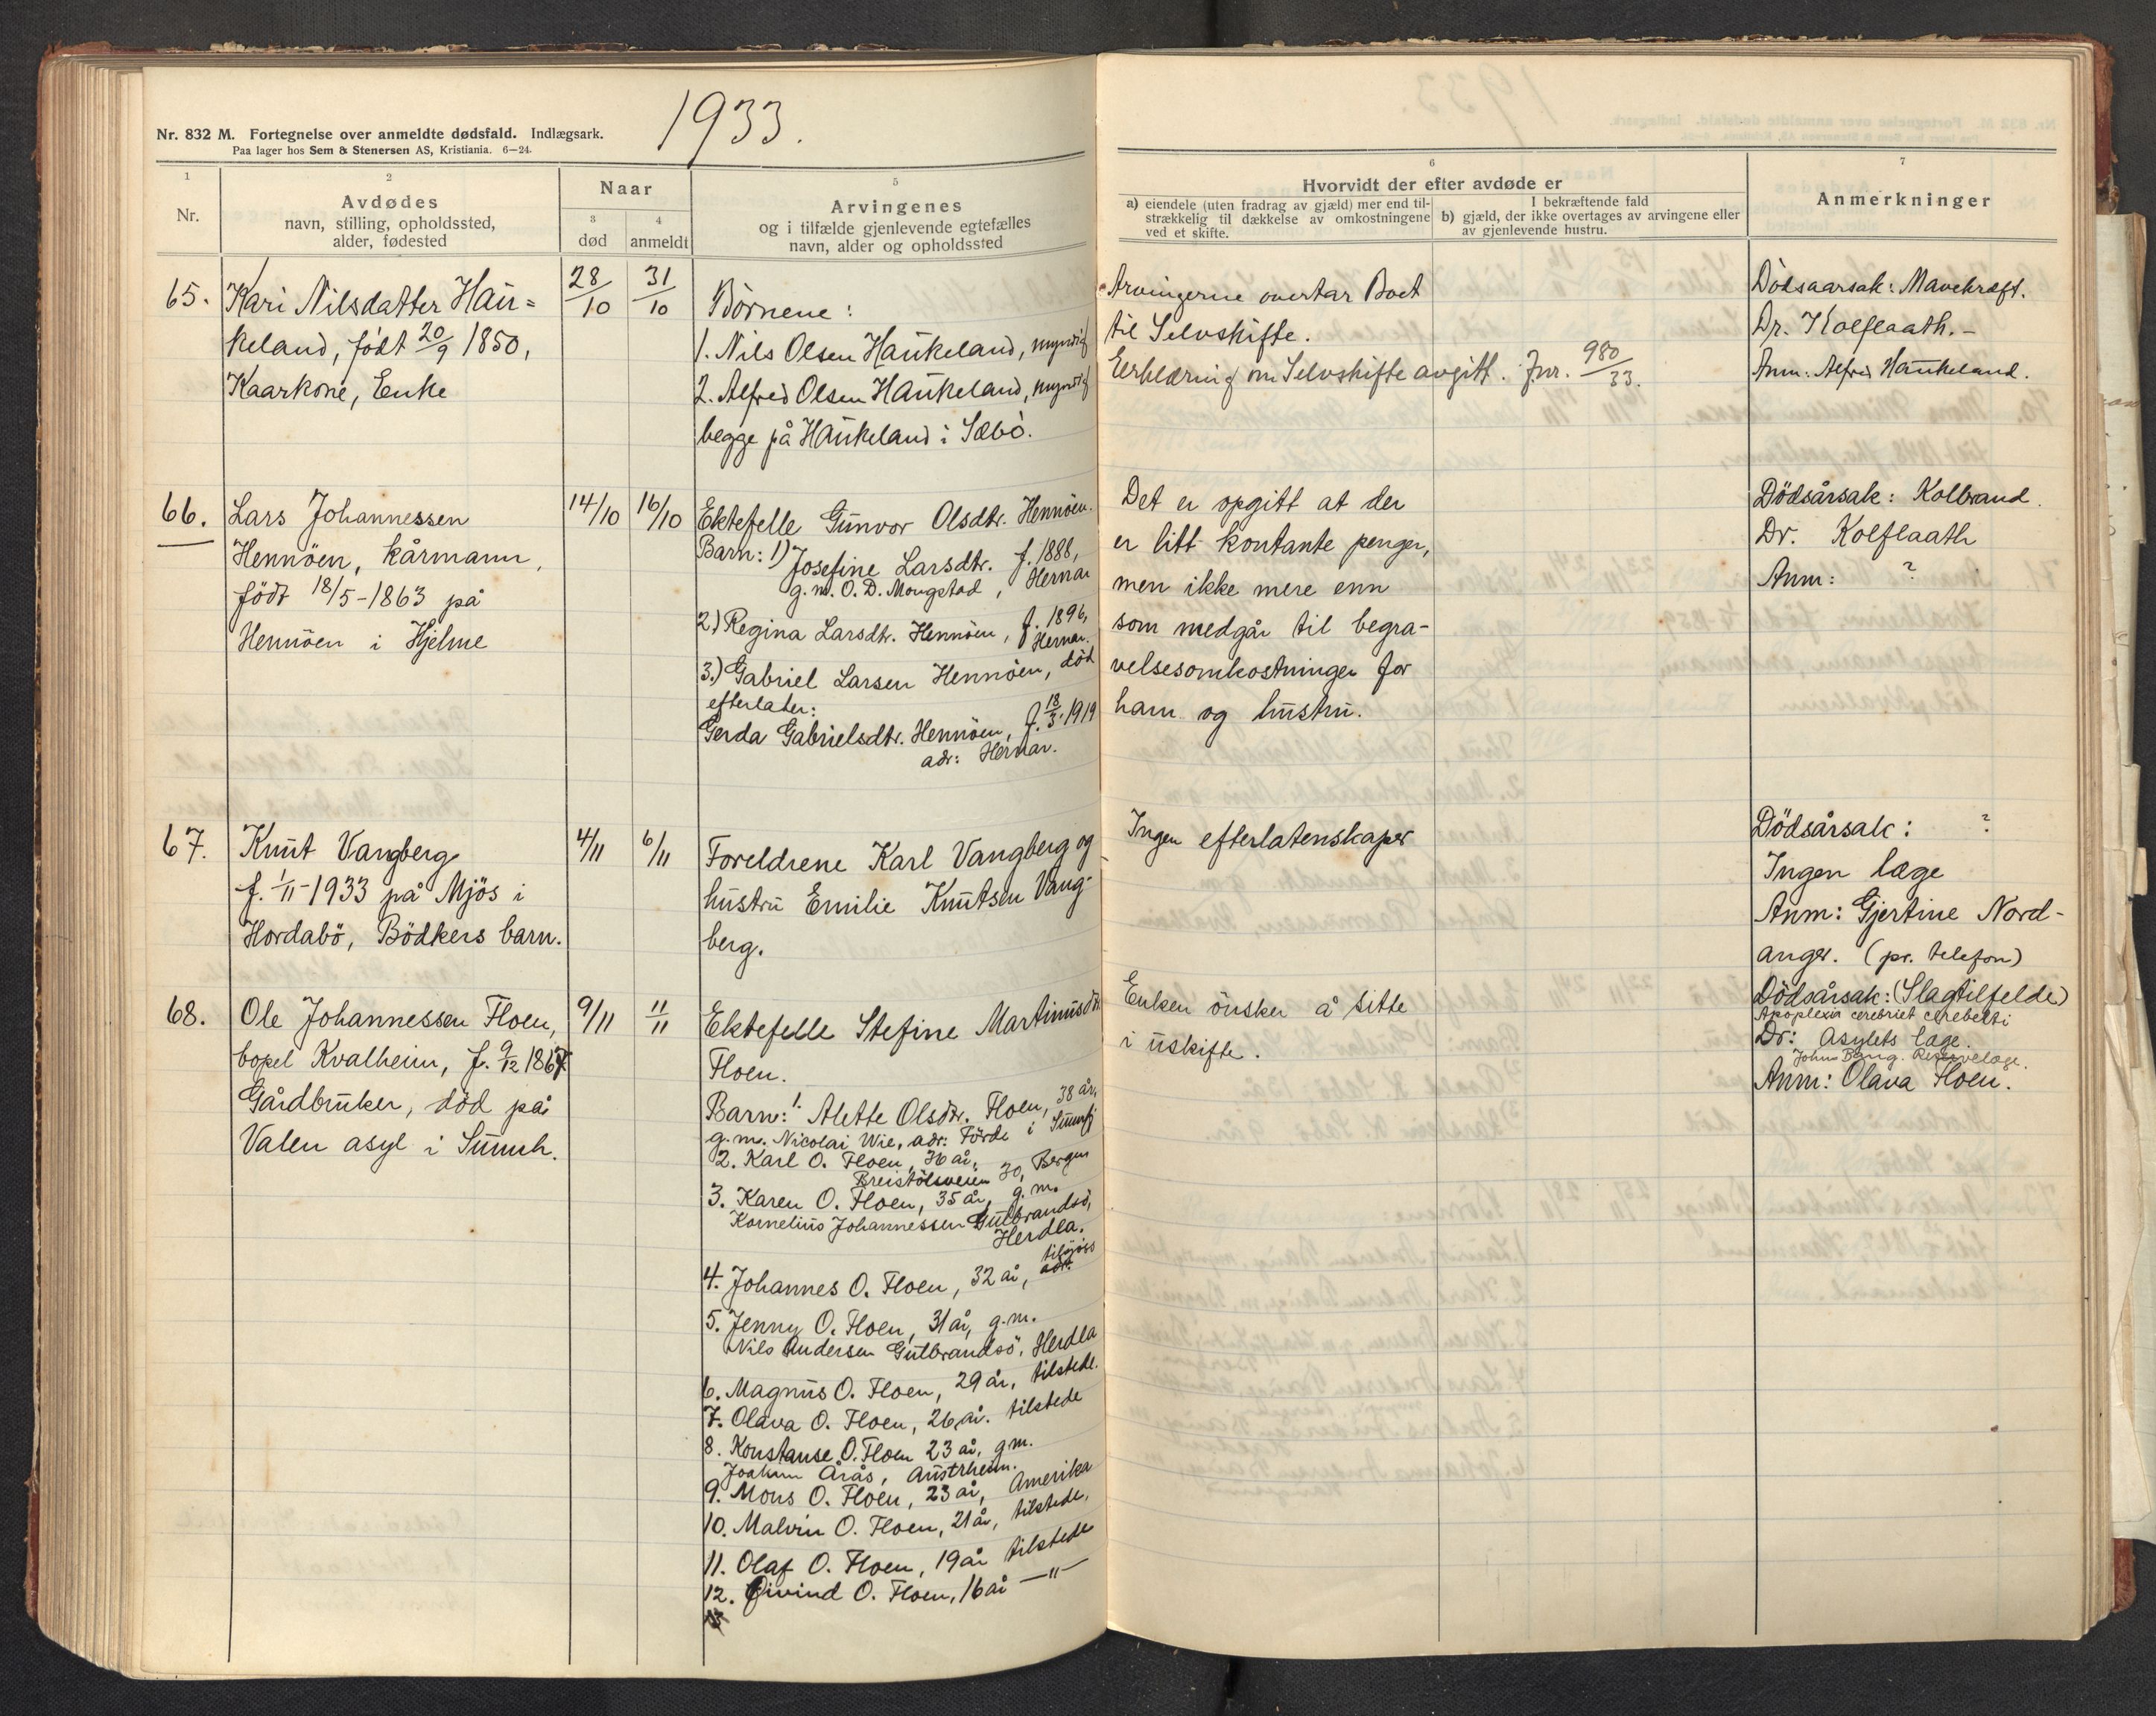 1933.
Nr. 832 M. Fortegnelse over anmeldte dødsfald. Indlægsark.
Paa lager hos Sem & Stenersen AS, Kristiania. 6—24.
1
Nr.
2
Avdødes
navn, stilling, opholdssted,
alder, fødested
Naar
3
død
4
anmeldt
5
Arvingenes
og i tilfælde gjenlevende egtefælles
navn, alder og opholdssted
6
Hvorvidt der efter avdøde er
a) eiendele (uten fradrag av gjæld) mer end til-
strækkelig til dækkelse av omkostningene
ved et skifte.
I bekræftende fald
b) gjæld, der ikke overtages av arvingene eller
av gjenlevende hustru.
7
Anmerkninger
65.
Kari Nilsdatter Hau=
keland, født 20/9 1850,
Kaarkone, Enke
28/10
31/10
Börnene:
1. Nils Olsen Haukeland, myndig
2. Alfred Olsen Haukeland, myndig
begge på Haukeland i Sæbö.
Arvingerne overtar Boet
til Selvskifte.
Erklæring om Selvskifte avgitt. Jnr. 980/33.
Dödsaarsak: Mavekræft.
Dr. Kolflaath.-
Anm: Alfred Haukeland.
66.
Lars Johannessen
Hennöen, kårmann,
født 18/5-1863 på
Hennöen i Hjelme
14/10
16/10
Ektefelle Gunvor Olsdtr. Hennöen.
Barn: 1) Josefine Larsdtr. f. 1888,
g.m. O. D. Mongstad, Hernar
2) Regina Larsdtr. Hennöen, f. 1896,
Hernar.
3.) Gabriel Larsen Hennöen, död
efterlater:
Gerda Gabrielsdtr. Hennöen, f. 18/3-1919
adr: Hernar.
Det er opgitt at der
er litt kontante penger,
men ikke mere enn
som medgår til begra-
velsesomkostninger for
ham og hustru.
Dödsårsak: Kolbrand.
Dr. Kolflaath
Anm: ?
67.
Knut Vangberg
f. 1/11-1933 på Mjös i
Hordabö, Bödkers barn.
4/11
6/11
Foreldrene Karl Vangberg og
hustru Emilie Knutsen Vang-
berg.
Ingen efterlatenskaper
Dödsårsak: ?
Ingen læge
Anm: Gjertine Nord-
anger. (pr. telefon)
68.
Ole Johannessen Floen,
bopel Kvalheim, f. 9/12 1867
Gårdbruker, död på
Valen asyl i Sunnh.
9/11
11/11
Ektefelle Stefine Martinusdtr.
Floen.
Barn: 1. Alette Olsdtr. Floen, 38 år,
g.m. Nicolai Wie, adr: Förde i Sunnfj
2. Karl O. Floen, 36 år,
Breistölsveien 30, Bergen
3. Karen O. Floen, 35 år, g.m.
Kornelius Johannessen Gulbrandsö,
Herdla.
4. Johannes O. Floen, 32 år, tilsjös
5. Jenny O. Floen, 31 år, g.m.
Nils Andersen Gulbrandsö, Herdla
6. Magnus O. Floen, 29 år, tilstede.
7. Olava O. Floen, 26 år. tilstede
8. Konstanse O. Floen 23 år, g.m.
Joakim Årås, Austrheim.
9. Mons O. Floen, 23 år, Amerika
10. Malvin O. Floen, 21 år, tilstede,
11. Olaf O. Floen, 19 år tilstede
12. Øivind O. Floen, 16 år —"—
Enken önsker å sitte
i uskifte.
Dödsårsak: (Slagtilfelde)
Apoplexia cerebriet cerebelli
Dr: Asylets læge.
John Bang. Reservelæge.
Anm: Olava Floen.